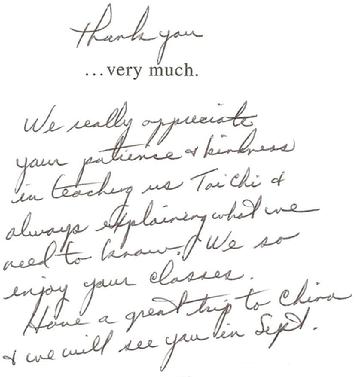 Thank you
...very much.
We really appreciate
your patience & kindness
in teaching us Tai Chi &
always explaining what we
need to know. We so
enjoy your classes.
Have a great trip to China
& we will see you in Sept.